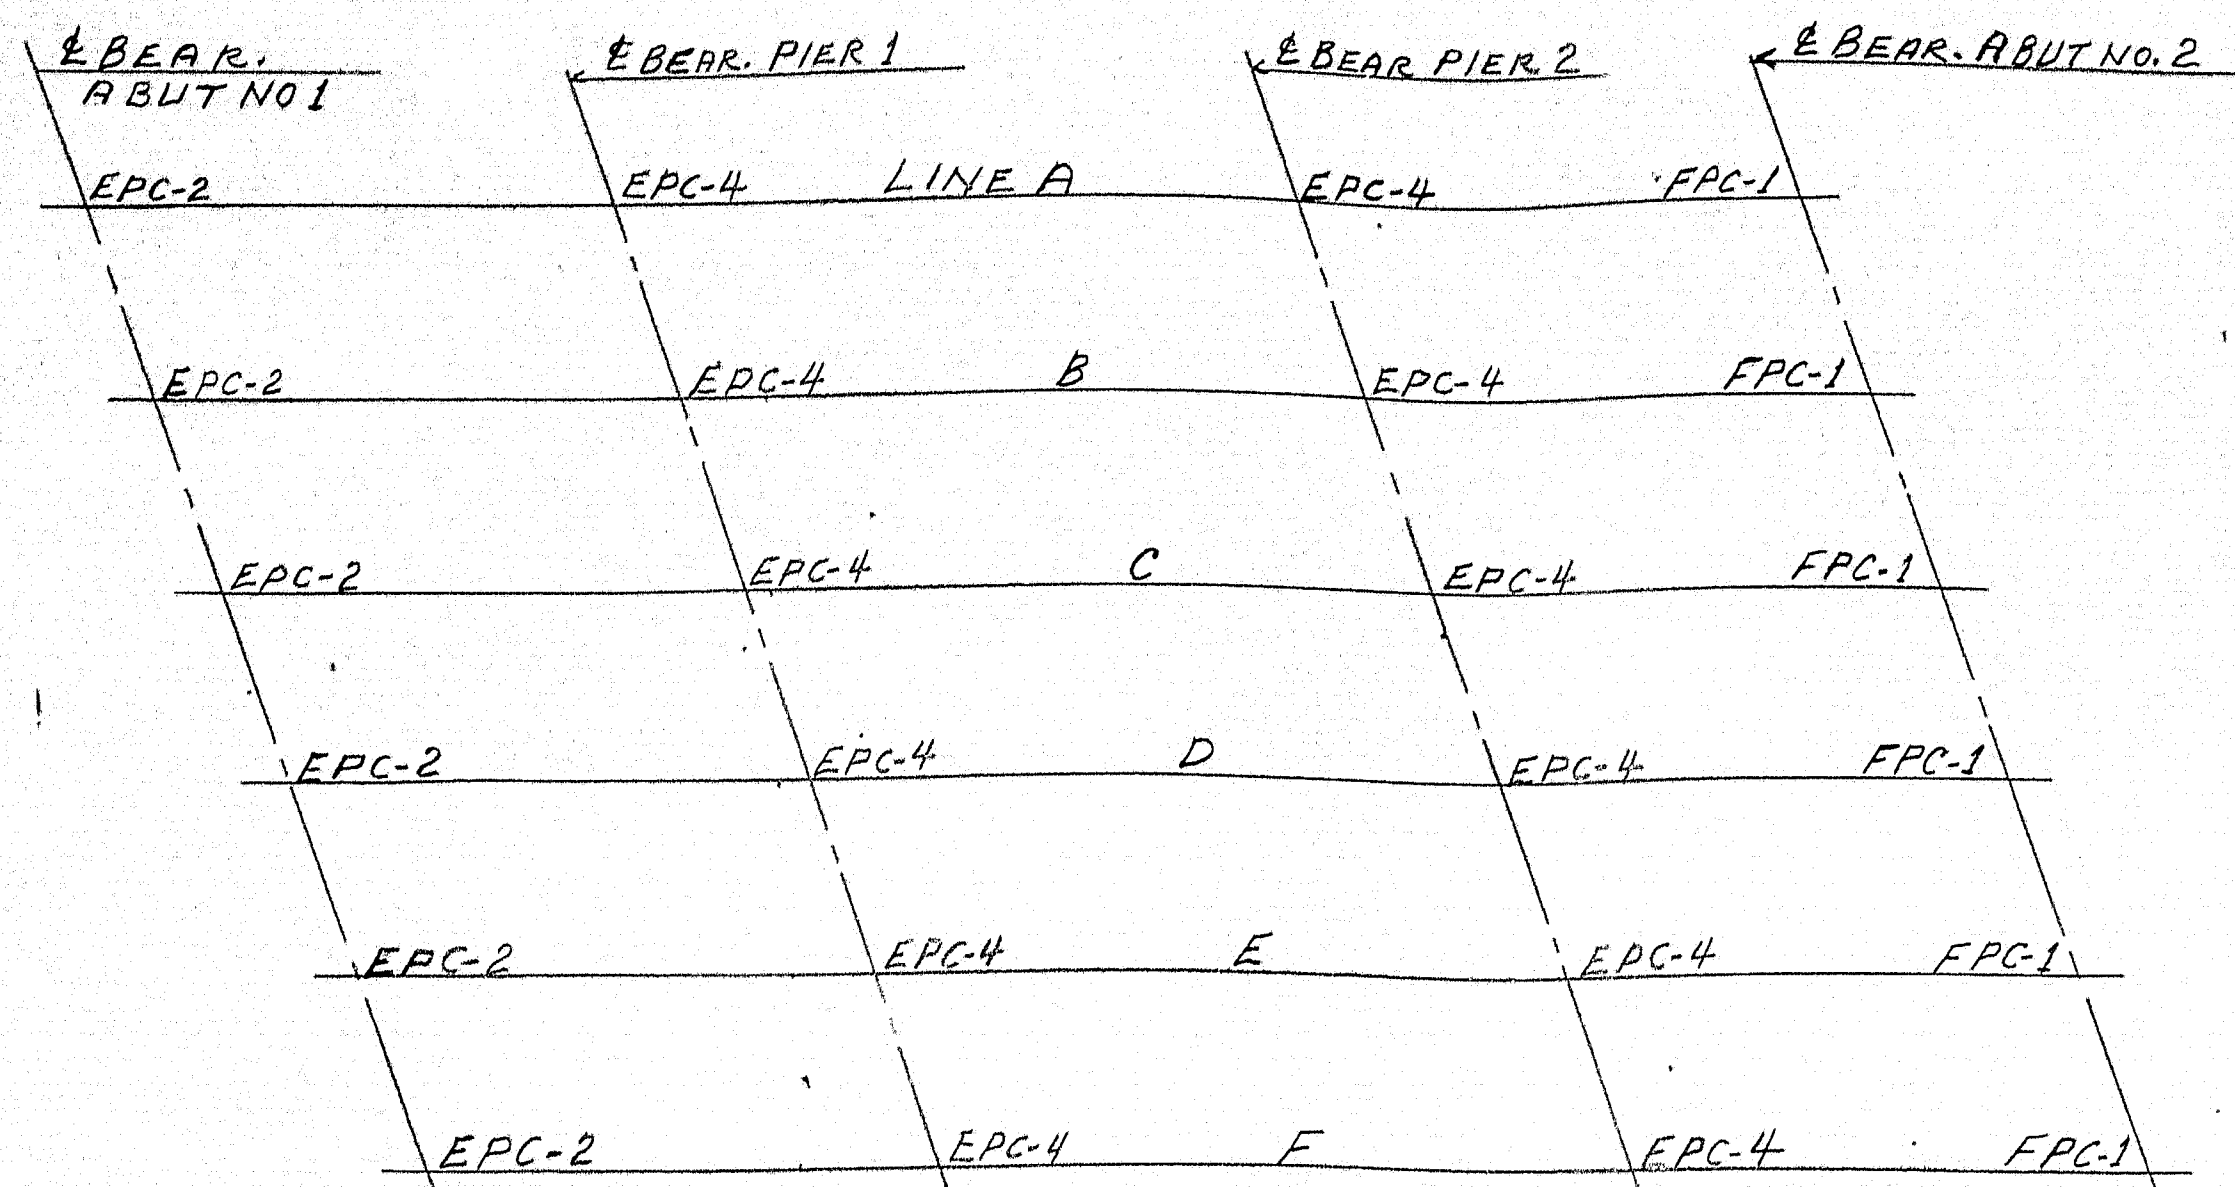 ℄ BEAR.
ABUT NO 1
℄ BEAR. PIER 1
℄ BEAR PIER 2
℄ BEAR. ABUT NO. 2
EPC-2 EPC-4 LINE A EPC-4 FPC-1
EPC-2 EPC-4 B EPC-4 FPC-1
EPC-2 EPC-4 C EPC-4 FPC-1
EPC-2 EPC-4 D EPC-4 FPC-1
EPC-2 EPC-4 E EPC-4 FPC-1
EPC-2 EPC-4 F EPC-4 FPC-1